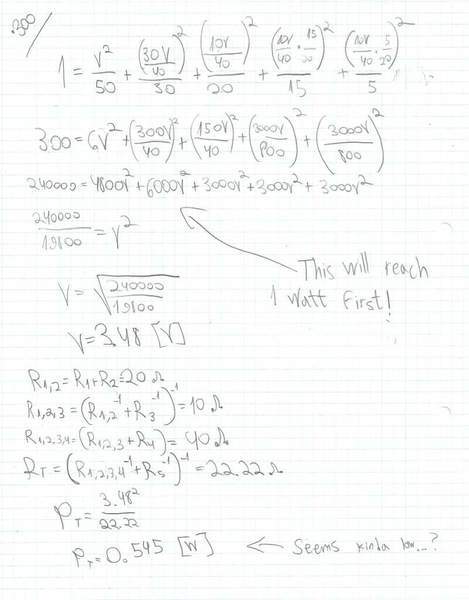 ·300/
1 = V²/50 + (30V/40)²/30 + (10V/40)²/20 + (10V/40 · 15/20)²/15 + (10V/40 · 5/20)²/5
300 = 6V² + (300V/40)² + (150V/40)² + (3000V/800)² + (3000V/800)²
240000 = 4800V² + 6000V² + 3000V² + 3000V² + 3000V²
240000/19100 = V²
This will reach
1 Watt first!
V = √(240000/19100)
V = 3.48 [V]
R1,2 = R1 + R2 = 20 Ω
R1,2,3 = (R1,2⁻¹ + R3⁻¹)⁻¹ = 10 Ω
R1,2,3,4 = (R1,2,3 + R4) = 40 Ω
RT = (R1,2,3,4⁻¹ + R5⁻¹)⁻¹ = 22.22 Ω
PT = 3.48²/22.22
PT = 0.545 [W] ← Seems kinda low...?